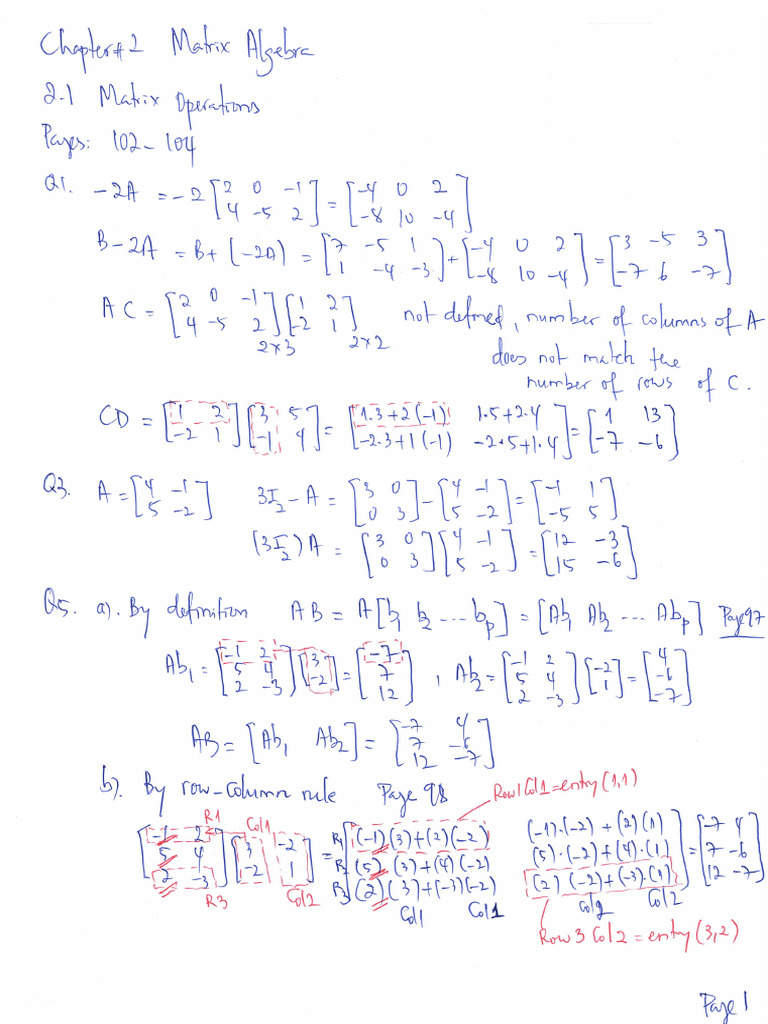 Chapter# 2 Matrix Algebra
2.1 Matrix Operations
Pages: 102-104
Q1. -2A = -2 [2 0 -1; 4 -5 2] = [-4 0 2; -8 10 -4]
B-2A = B+(-2A) = [7 -5 1; 1 -4 -3] + [-4 0 2; -8 10 -4] = [3 -5 3; -7 6 -7]
AC = [2 0 -1; 4 -5 2] [1 2; -2 1] not defined, number of columns of A
2×3 2×2 does not match the
number of rows of C.
CD = [1 2; -2 1] [3 5; -1 4] = [1.3+2(-1) 1.5+2.4; -2.3+1(-1) -2.5+1.4] = [1 13; -7 -6]
Q3. A = [4 -1; 5 -2] 3I₂-A = [3 0; 0 3] - [4 -1; 5 -2] = [-1 1; -5 5]
(3I₂)A = [3 0; 0 3] [4 -1; 5 -2] = [12 -3; 15 -6]
Q5. a). By definition AB = A[b₁ b₂ ... bp] = [Ab₁ Ab₂ ... Abp] Page 97
Ab₁ = [-1 2; 5 4; 2 -3] [3; -2] = [-7; 7; 12], Ab₂ = [-1 2; 5 4; 2 -3] [-2; 1] = [4; -6; -7]
AB = [Ab₁ Ab₂] = [-7 4; 7 -6; 12 -7]
b). By row-column rule Page 98
Row1 Col1 = entry (1,1)
R1 Col1
[-1 2; 5 4; 2 -3] [3 -2; -2 1] = [(-1)(3)+(2)(-2) (-1).(-2)+(2)(1); (5).(3)+(4)(-2) (5).(-2)+(4).(1); (2)(3)+(-3)(-2) (2)(-2)+(-3).(1)] = [-7 4; 7 -6; 12 -7]
R1 R2 R3
R3 Col2 Col1 Col1 Col2 Col2
Row 3 Col 2 = entry (3,2)
Page 1